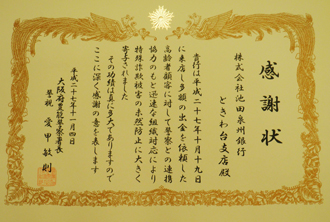 感謝状
株式会社池田泉州銀行
ときわ台支店殿
貴行は平成二十七年十月十九日
に来店し多額の出金を依頼した
高齢者顧客に対して警察との連携
協力のもと迅速な組織対応により
特殊詐欺被害の未然防止に大きく
寄与されました
その功績は真に多大でありますので
ここに深く感謝の意を表します
平成二十七年十一月四日
大阪府豊能警察署長
警視 愛甲敏則